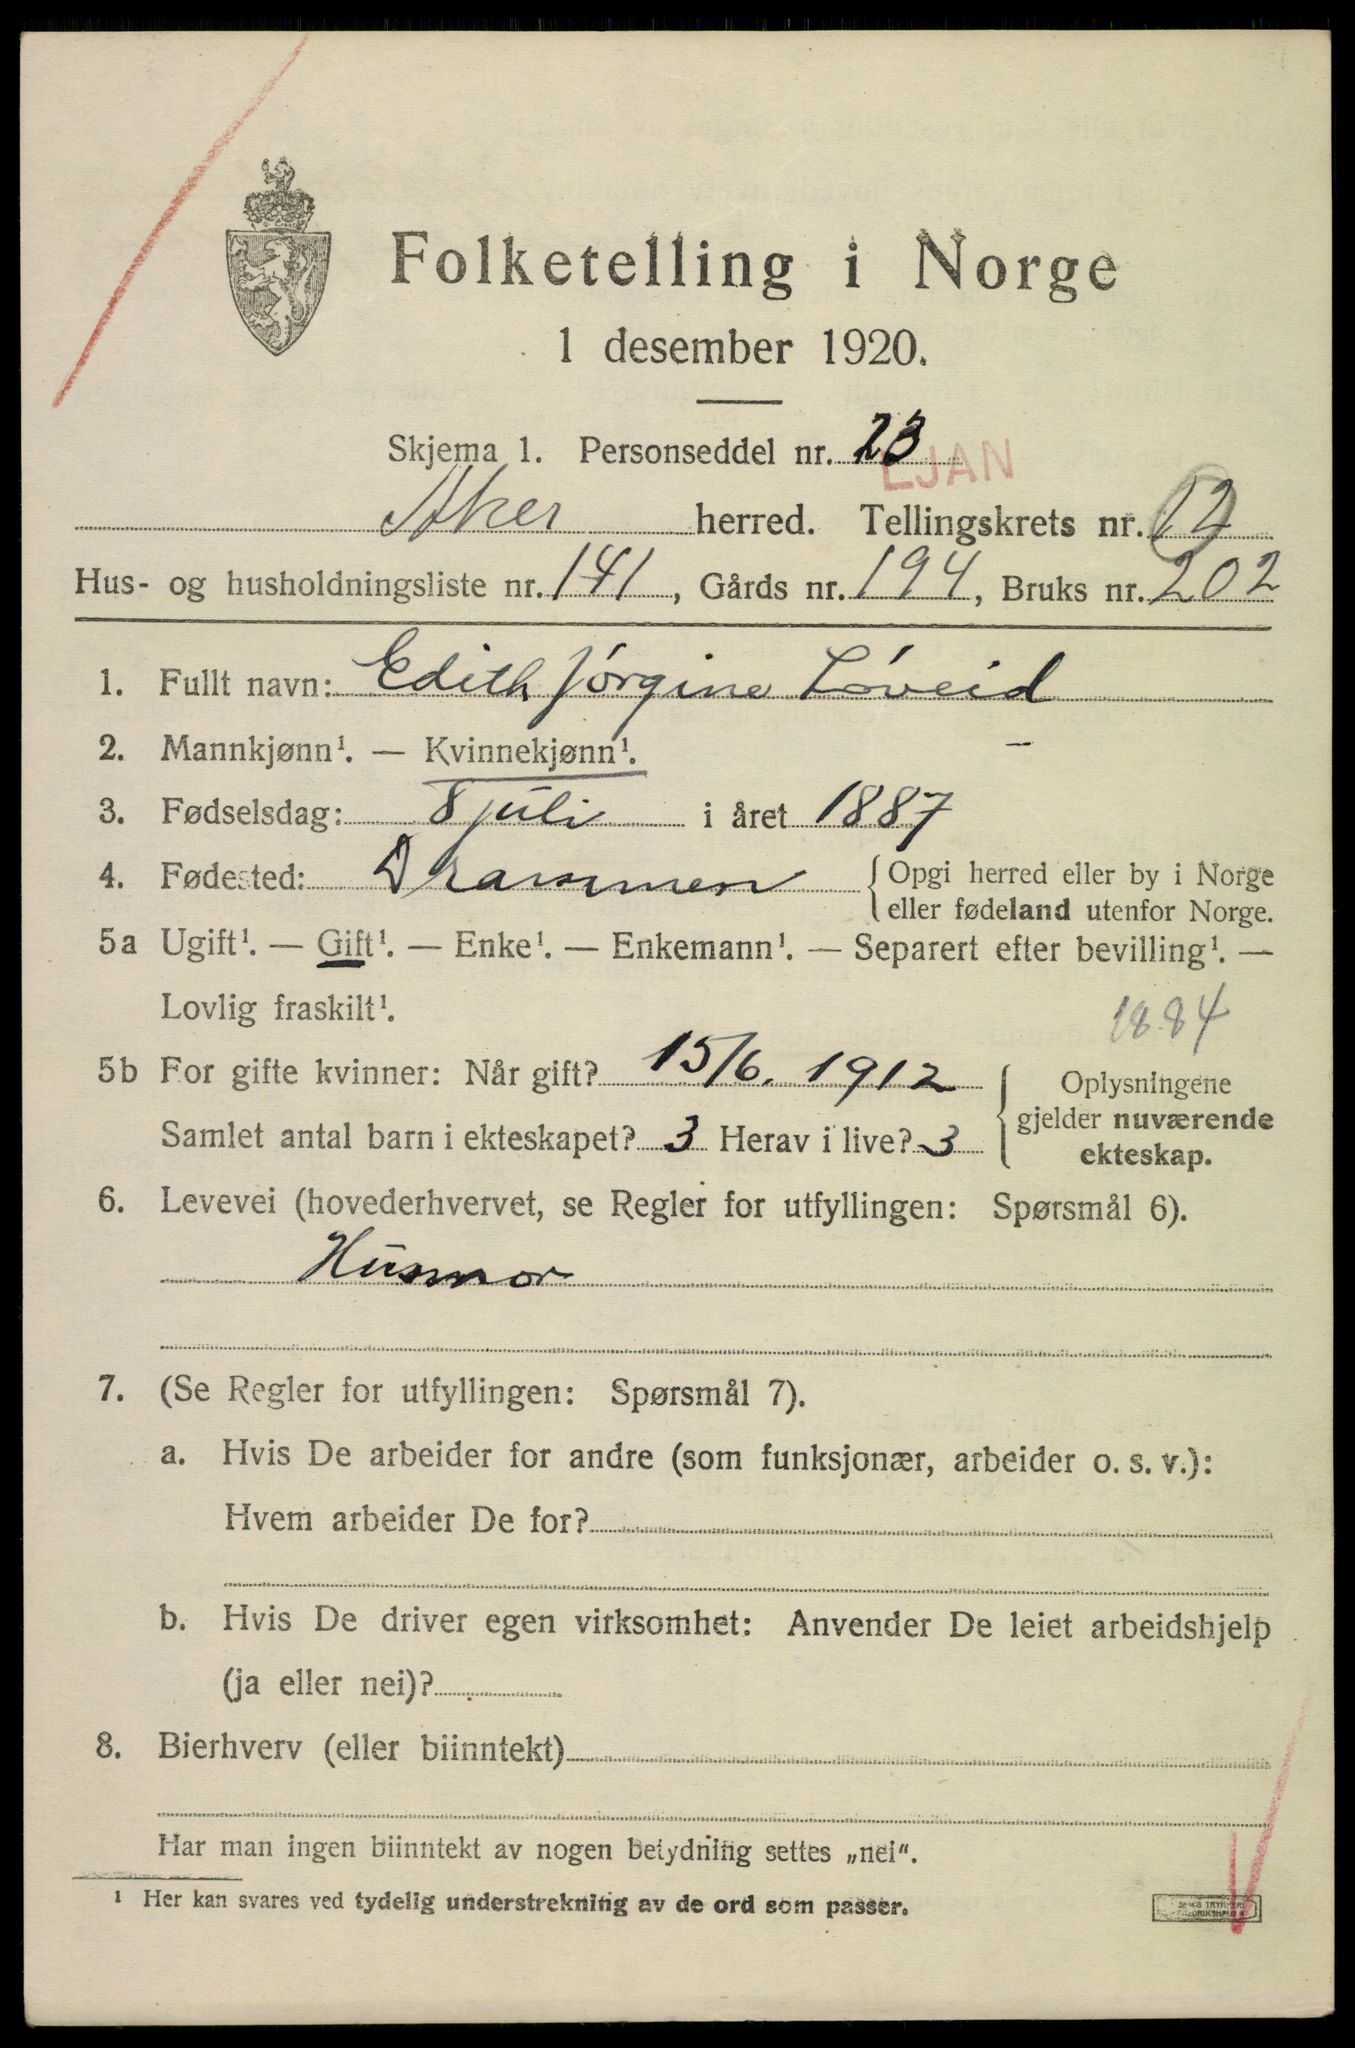 Folketelling i Norge
1 desember 1920.
Skjema 1. Personseddel nr. 23
LJAN
Aker herred. Tellingskrets nr. 12
Hus- og husholdningsliste nr. 141, Gårds nr. 194, Bruks nr. 202
1. Fullt navn: Edith Jørgine Løveid
2. Mannkjønn¹. — Kvinnekjønn¹.
3. Fødselsdag: 8 juli i året 1887
4. Fødested: Drammen {Opgi herred eller by i Norge
eller fødeland utenfor Norge.
5a Ugift¹. — Gift¹. — Enke¹. — Enkemann¹. — Separert efter bevilling¹. —
Lovlig fraskilt¹.
1884
5b For gifte kvinner: Når gift? 15/6. 1912
Samlet antal barn i ekteskapet? 3 Herav i live? 3
Oplysningene
gjelder nuværende
ekteskap.
6. Levevei (hovederhvervet, se Regler for utfyllingen: Spørsmål 6).
Husmor
7. (Se Regler for utfyllingen: Spørsmål 7).
a. Hvis De arbeider for andre (som funksjonær, arbeider o. s. v.):
Hvem arbeider De for?
b. Hvis De driver egen virksomhet: Anvender De leiet arbeidshjelp
(ja eller nei)?
8. Bierhverv (eller biinntekt)
Har man ingen biinntekt av nogen betydning settes „nei".
¹ Her kan svares ved tydelig understrekning av de ord som passer.